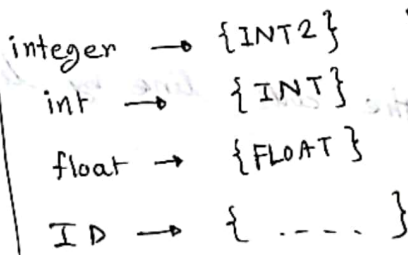 integer → {INT2}
int → {INT}
float → {FLOAT}
ID → { ..... }